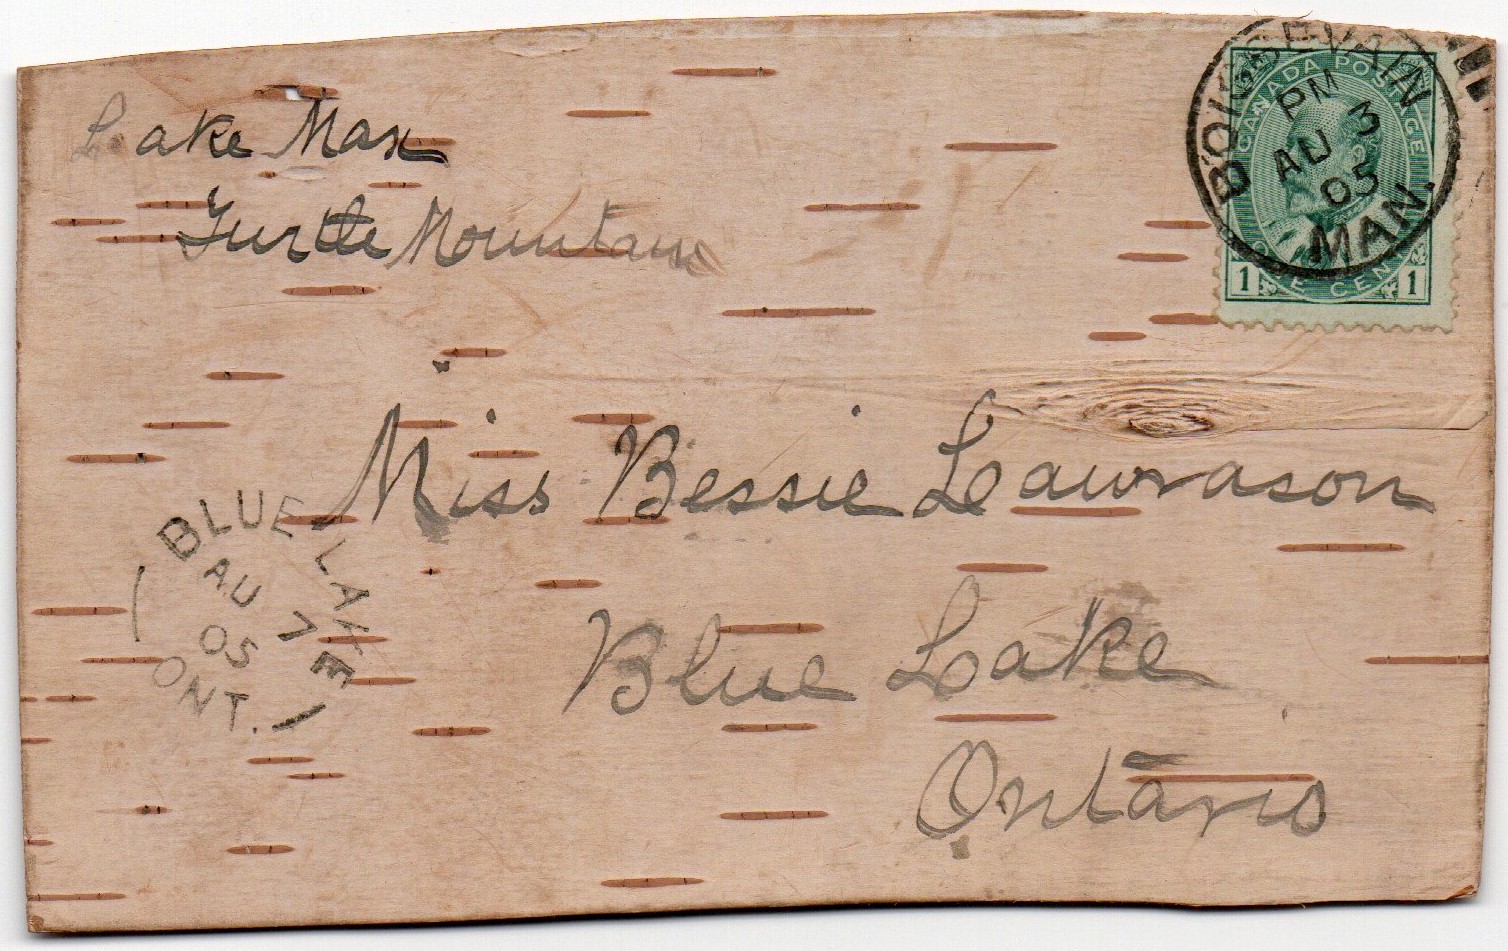 Lake Max
Turtle Mountain
BOISSEVAIN
PM
AU 3
05
MAN.
CANADA POSTAGE
1 ONE CENT 1
Miss Bessie Lawrason
BLUE LAKE
AU 7
05
ONT.
Blue Lake
Ontario